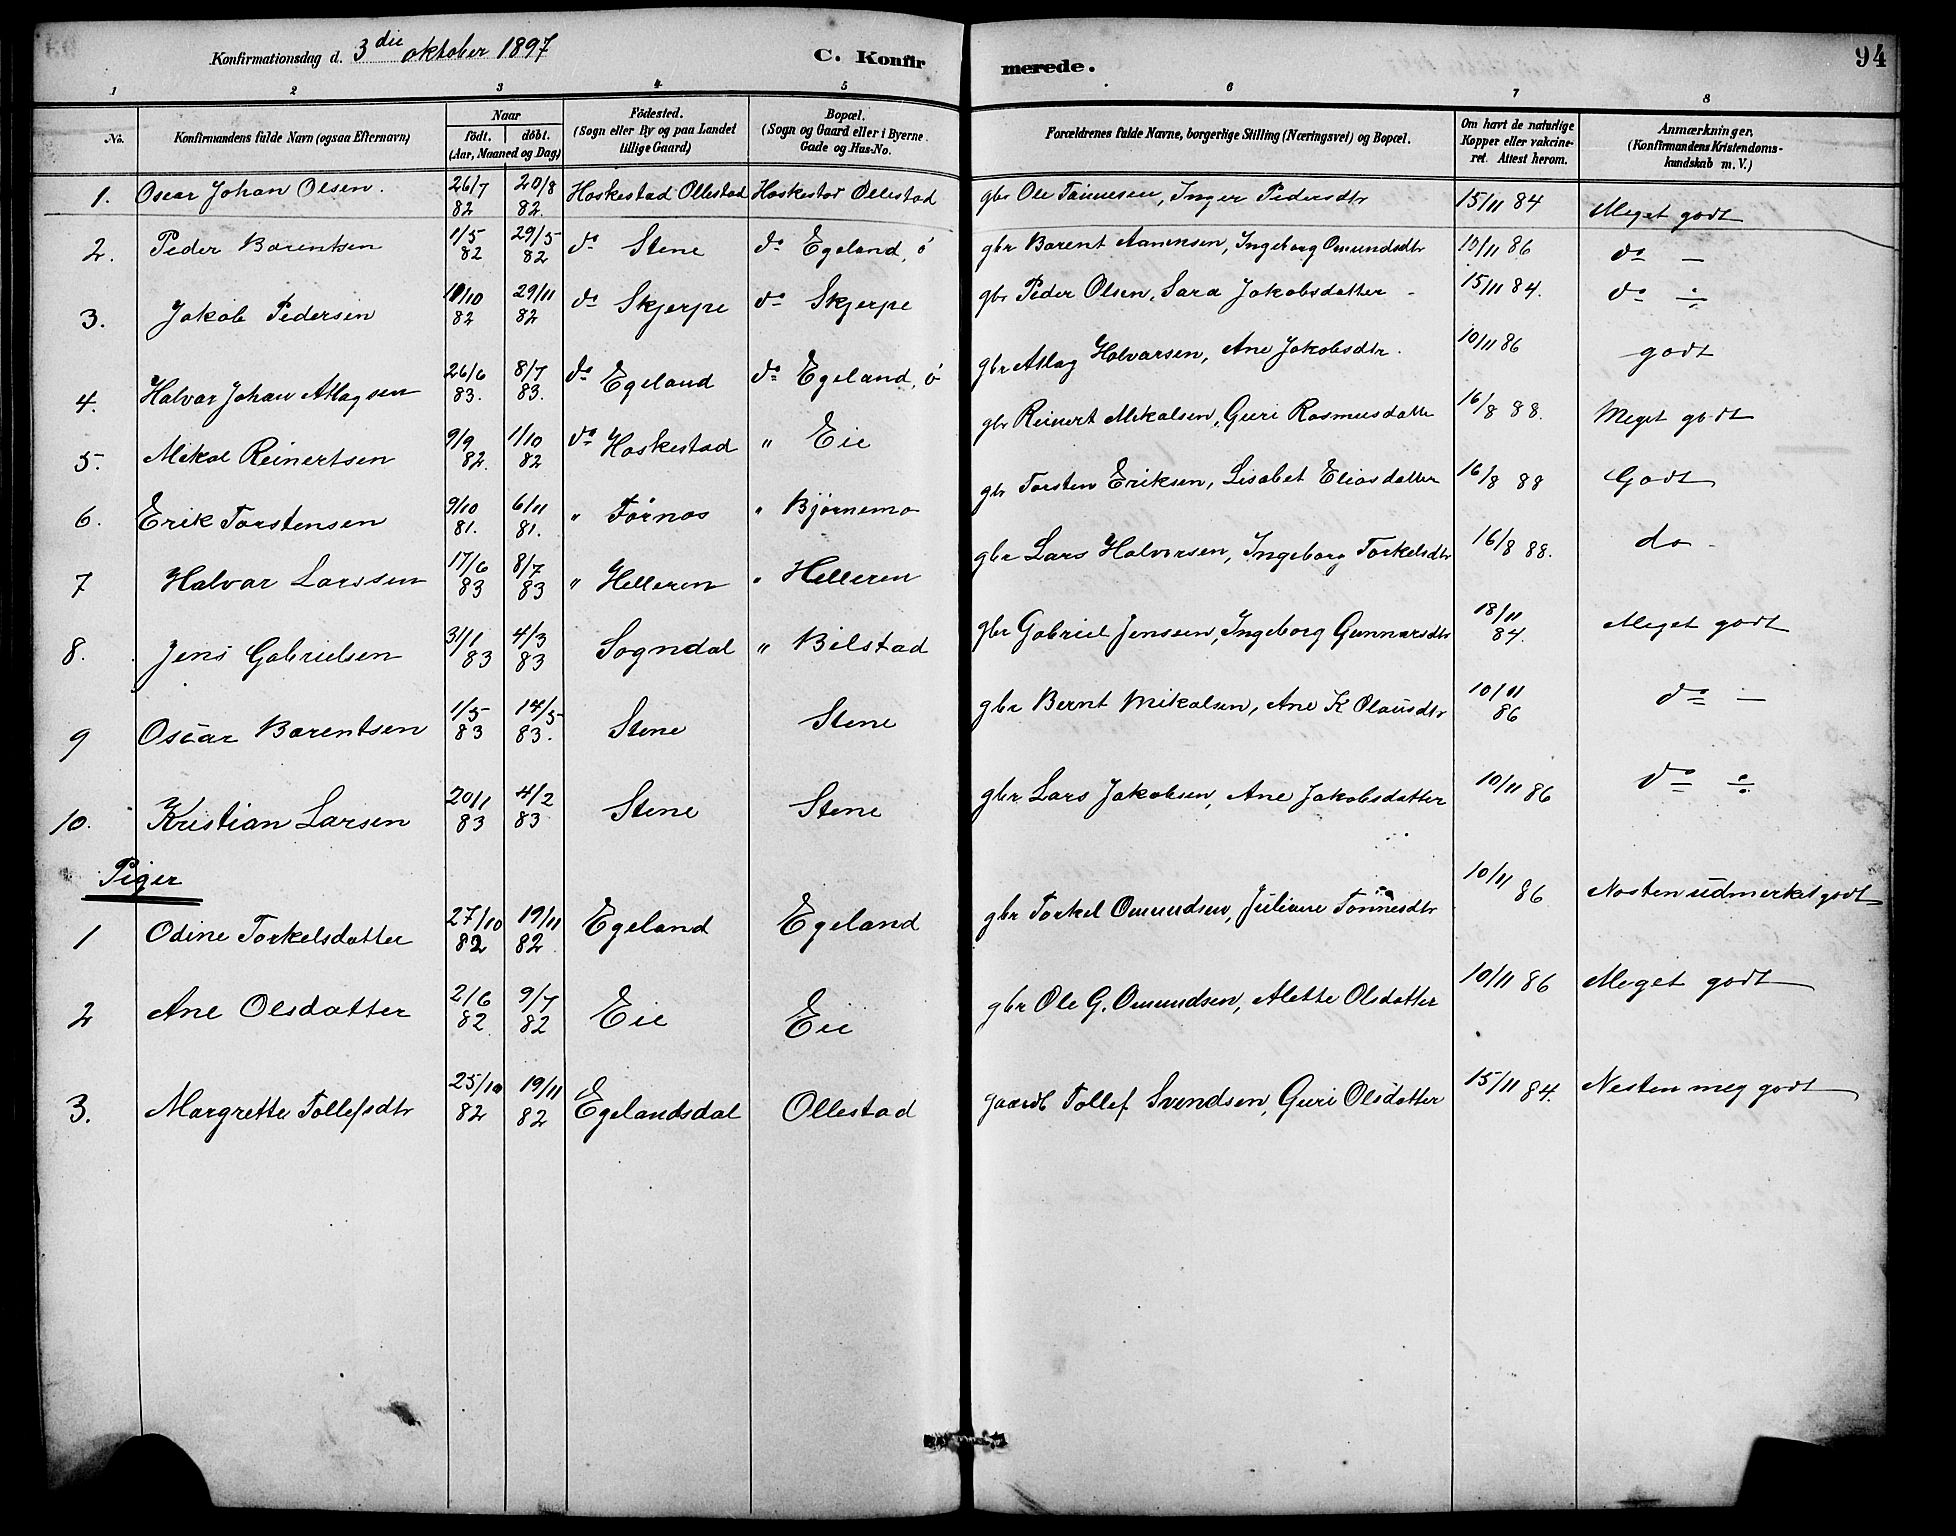 Konfirmationsdag d. 3die oktober 1897 C. Konfirmerede. 94
1 2 3 4 5 6 7 8
No. Konfirmandens fulde Navn (ogsaa Efternavn) Naar födt. döbt. (Aar, Maaned og Dag) Födested. (Sogn eller By og paa Landet tillige Gaard) Bopæl. (Sogn og Gaard eller i Byerne Gade og Hus-No. Forældrenes fulde Navne, borgerlige Stilling (Næringsvei) og Bopæl. Om havt de naturlige Kopper eller vakcineret. Attest herom. Anmærkninger. (Konfirmandens Kristendomskundskab m. V.)
1. Oscar Johan Olsen. 26/7 82 20/8 82. Hoskestad Ollestad Hoskestad Ollestad gbr Ole Tønnesen, Inger Pedersdtr 15/11 84 Meget godt
2. Peder Barentsen 1/5 82 29/5 82 do Stene do Egeland, ö gbr Barent Aanensen, Ingeborg Omundsdtr 10/11 86 do —
3. Jakob Pedersen 11/10 82 29/11 82 do Skjerpe do Skjerpe gbr Peder Olsen, Sara Jakobsdatter - 15/11 84. do ÷
4. Halvar Johan Atlagsen 26/6 83. 8/7 83. do Egeland do Egeland, ö gbr Atlag Halvarsen, Ane Jakobsdtr. 10/11 86 godt
5. Mikal Reinertsen 9/9 82. 1/10 82 do Hoskestad " Eie gbr Reinert Mikalsen, Guri Rasmusdatter 16/8 88. Meget godt
6. Erik Torstensen 9/10 81. 6/11 81. " Förnos " Bjørnemo gbr Torsten Eriksen, Lisabet Eliasdatter 16/8 88 Godt
7 Halvar Larssen 17/6 83 8/7 83 " Helleren " Helleren gbr Lars Halvorsen, Ingeborg Torkelsdtr 16/8 88. do -
8. Jens Gabrielsen 31/1 83 4/3 83 Sogndal " Bilstad gbr Gabriel Jenssen, Ingeborg Gunnarsdtr 18/11 84. Meget godt
9 Oscar Barentsen 1/5 83 14/5 83. Stene Stene gbr Bernt Mikalsen, Ane K Olausdtr 10/11 86 do —
10. Kristian Larsen 20/1 83 4/2 83 Stene Stene gbr Lars Jakobsen, Ane Jakobsdatter 10/11 86 do ÷
Piger
1 Odine Torkelsdatter 27/10 82 19/11 82. Egeland Egeland gbr Torkel Omundsen, Juliane Tönnesdtr 10/11 86 Nesten udmerket godt
2 Ane Olsdatter 2/6 82. 9/7 82 Eie Eie gbr Ole G. Omundsen, Alette Olsdatter 10/11 86 Meget godt
3. Margrette Tollefsdtr 25/10 82 19/11 82 Egelandsdal Ollestad gaardb Tollef Svendsen, Guri Olsdatter 15/11 84. Nesten meg godt